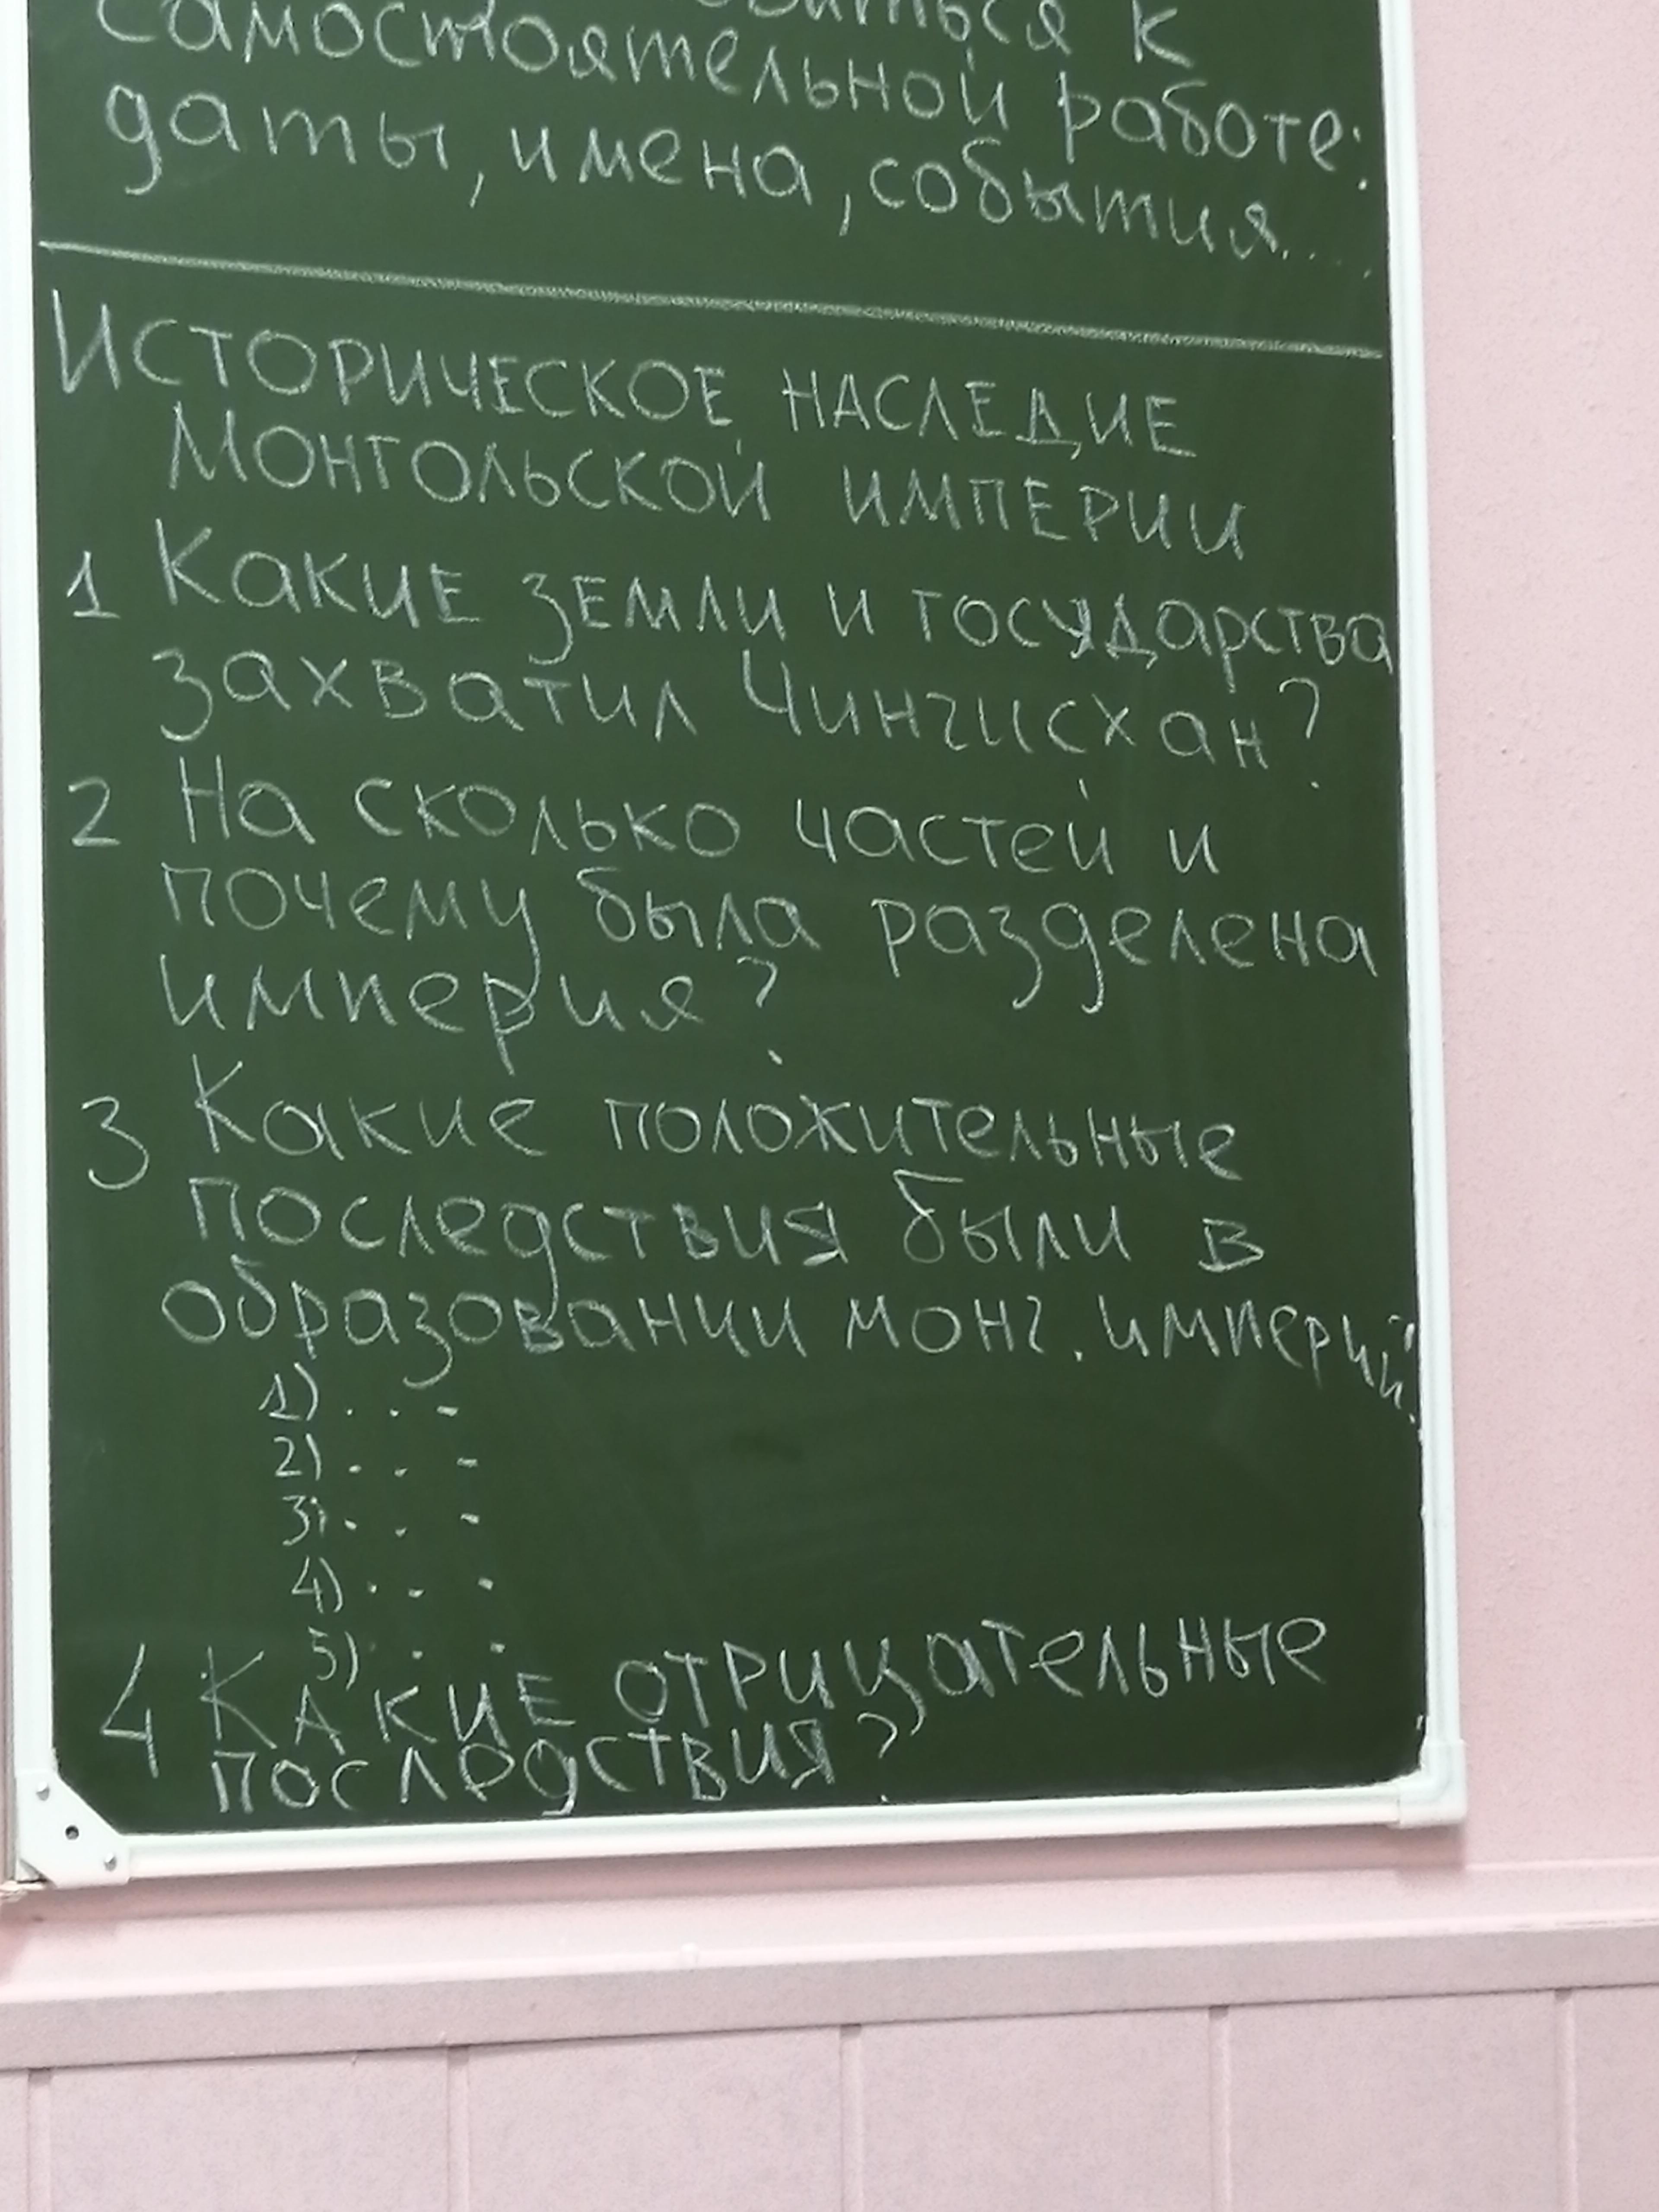 самостоятельной работе:
даты, имена, события....
ИСТОРИЧЕСКОЕ НАСЛЕДИЕ
МОНГОЛЬСКОЙ ИМПЕРИИ
1 Какие земли и государства
захватил Чингисхан?
2 На сколько частей и
почему была разделена
империя?
3 Какие положительные
последствия были в
образовании монг. империи?
1) . . .
2) . . .
3) . . .
4) . . .
5) . . .
4 Какие отрицательные
последствия?